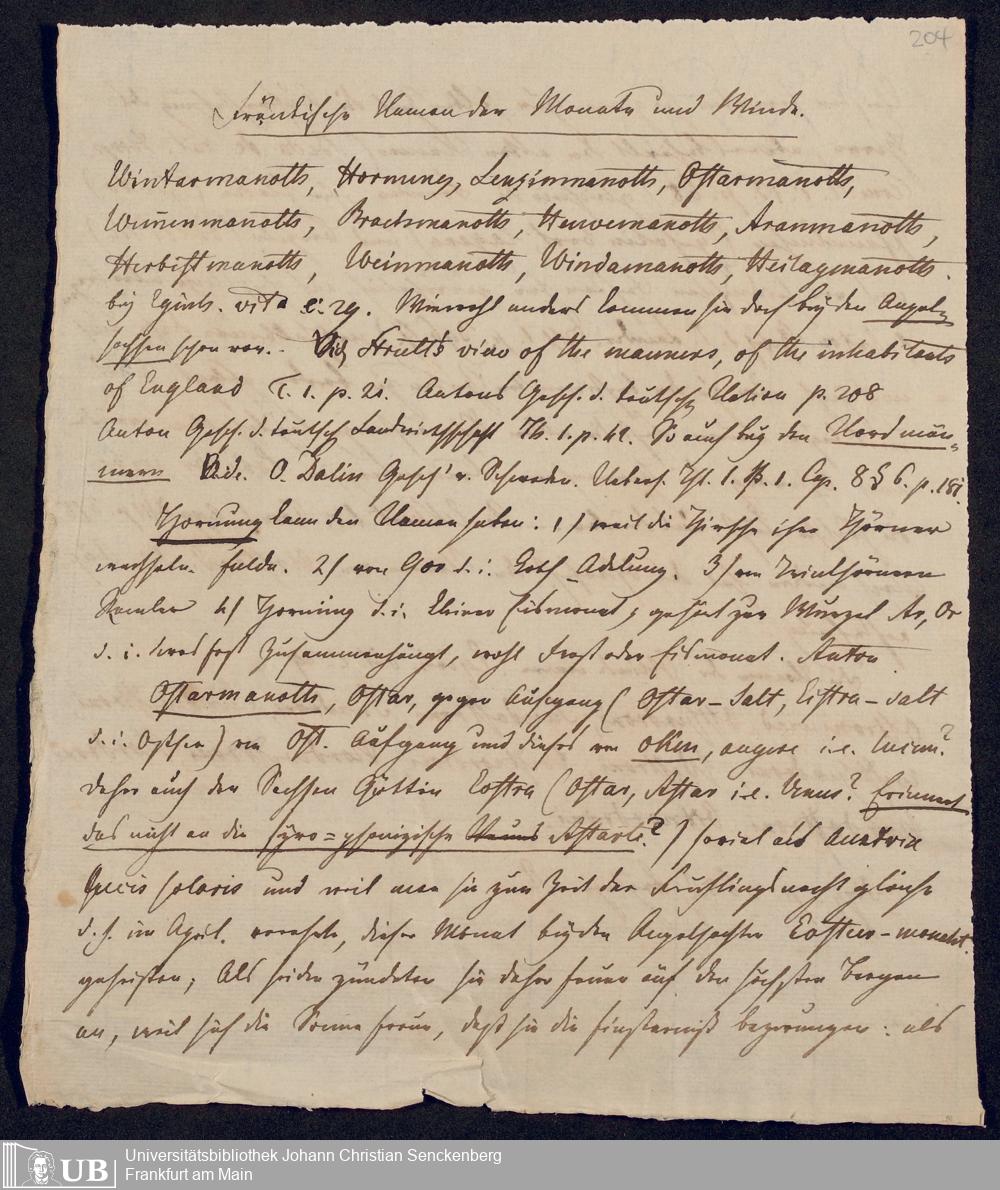 204
Fränkische Namen der Monate und Winde.
Wintarmanoth, Hornung, Lenzinmanoth, Ostarmanoth,
Winnenmanoth, Brachmanoth, Heuvemanoth, Aranmanoth,
Herbistmanoth, Weinmanoth, Windamanoth, Heilagmanoth.
bey Eginh. vita c. 29. Wiewohl anders kommen sie doch bey den Angel-
sachsen schon vor. Vid. Strutt's view of the manners, of the inhabitants
of England T. 1. p. 21. Antons Gesch. d. teutsch. Nation p. 208
Anton Gesch. d. teutsch. Landwirthschaft Th. 1. p. 49. So auch bey den Nordmän-
nern Vide. O. Dalin Gesch. v. Schweden. Uebers. Thl. 1. Cap. 8 § 6. p. 181.
Hornung kann den Namen haben: 1) weil die Hirsche ihre Hörner
wechseln. Fulda. 2) von Goo d. i. Koth Adelung. 3) von Trinkhörnern
4) Horning d. i. kleiner Eismonat; gehört zur Wurzel Ar, Or
d. i. was fest zusammenhängt, wohl Frost oder Eismonat. Anton
Ostarmanoth, Ostar, gegen Aufgang (Ostar-Salt, Eistra-salt
d. i. Ostsee) von Ost. Aufgang und dieses von oken, augere i.e.
daher auch der Sachsen Göttin Eostra (Ostar, Astar i.e. Venus? Erinnert
das nicht an die syro=phönizische Venus Astarte?) soviel als
solaris und weil man sie zur Zeit der Frühlingsnachtgleiche
d. h. im April. verehrte, dieser Monat bey den Angelsachsen Eostur-monath.
geheissen; Als Heiden zündeten sie daher Feuer auf den höchsten Bergen
an, weil sich die Sonne freue, daß sie die Finsterniß bezwungen: als
Universitätsbibliothek Johann Christian Senckenberg
Frankfurt am Main
UB